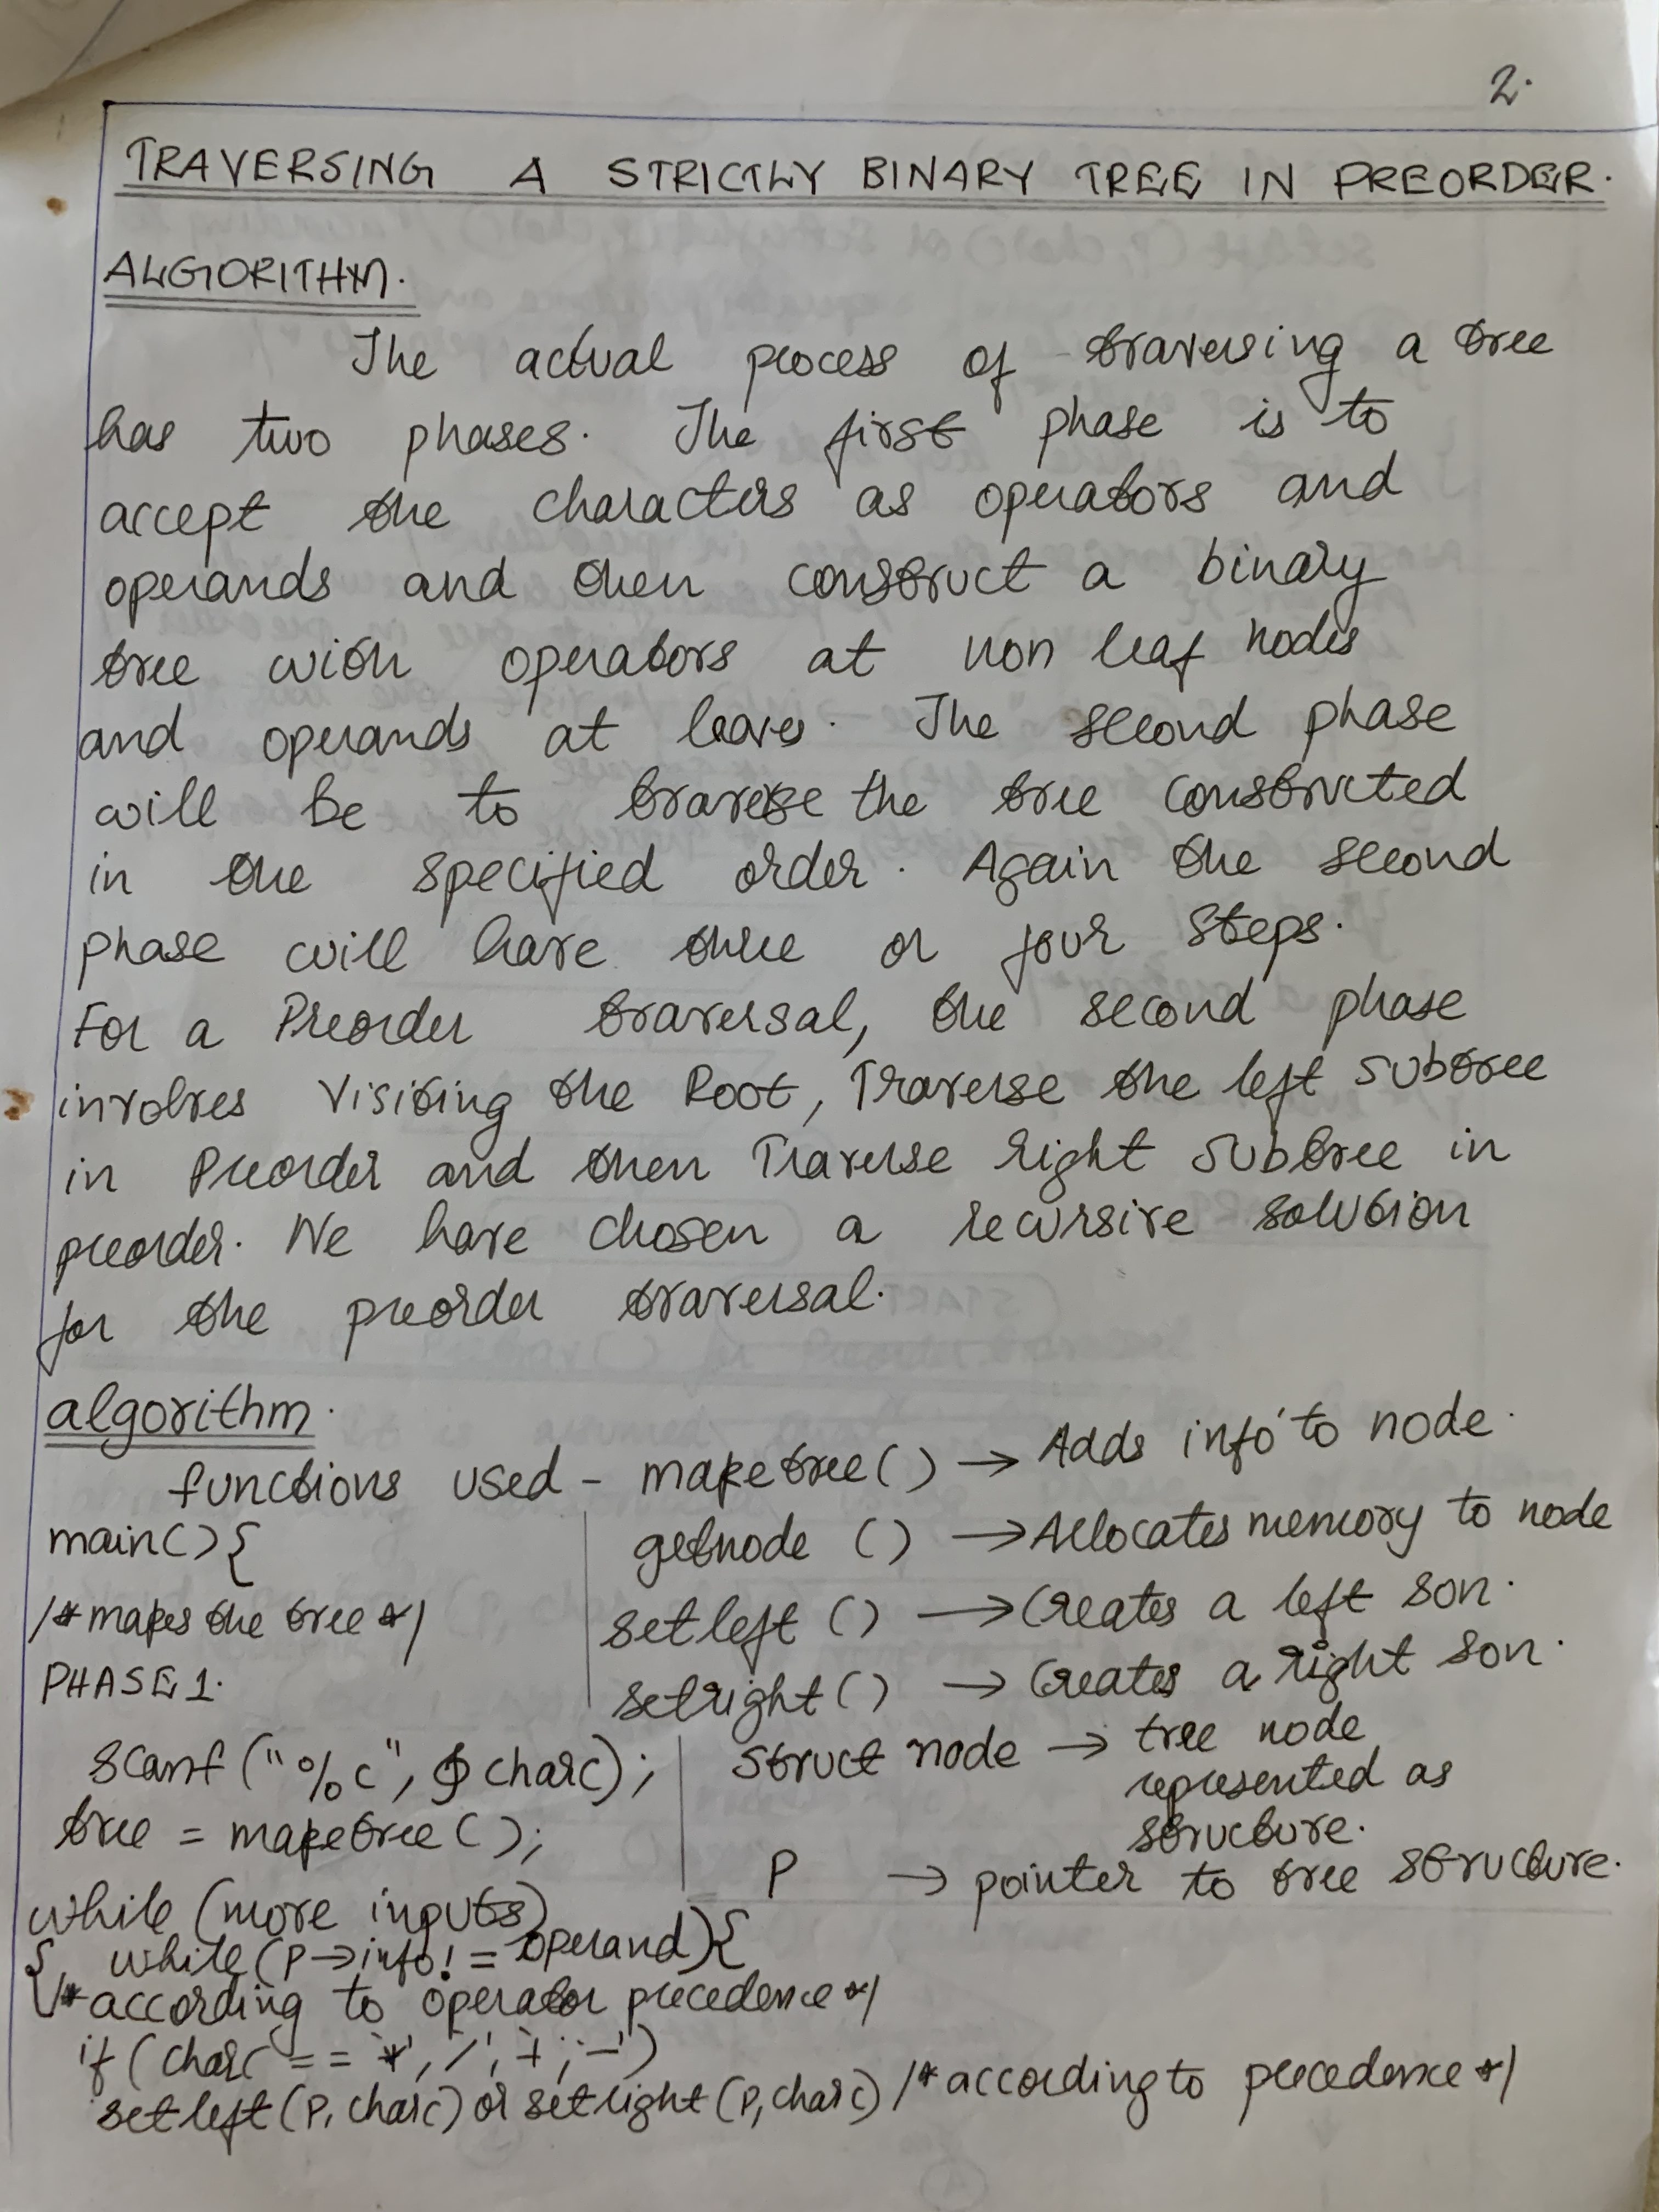 2.
TRAVERSING A STRICTLY BINARY TREE IN PREORDER.
ALGORITHM.
The actual process of traversing a tree
has two phases. The first phase is to
accept the characters as operators and
operands and then construct a binary
tree with operators at non leaf nodes
and operands at leaves. The second phase
will be to traverse the tree constructed
in the specified order. Again the second
phase will have three or four steps.
For a Preorder traversal, the second phase
involves Visiting the Root, Traverse the left subtree
in Preorder and then Traverse right subtree in
preorder. We have chosen a recursive solution
for the preorder traversal.
algorithm.
functions used - maketree() → Adds info to node.
main(){ getnode () → Allocates memory to node
/* makes the tree */ setleft () → Creates a left son.
PHASE 1. setright() → Creates a right son.
scanf("%c", & charc); struct node → tree node
represented as
tree = maketree(); structure.
P → pointer to tree structure.
while (more inputs)
{ while(P→info! = operand){
/* according to operator precedence */
if( charc == '*', '/', '+', '-')
setleft(P, charc) or setright(P, charc) /* according to precedence */